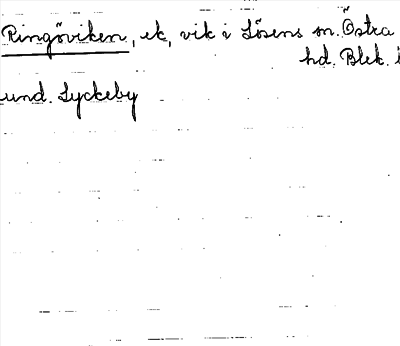 Ringöviken, ek, vik i Lösens sn. Östra
hd. Blek. i
und. Lyckeby